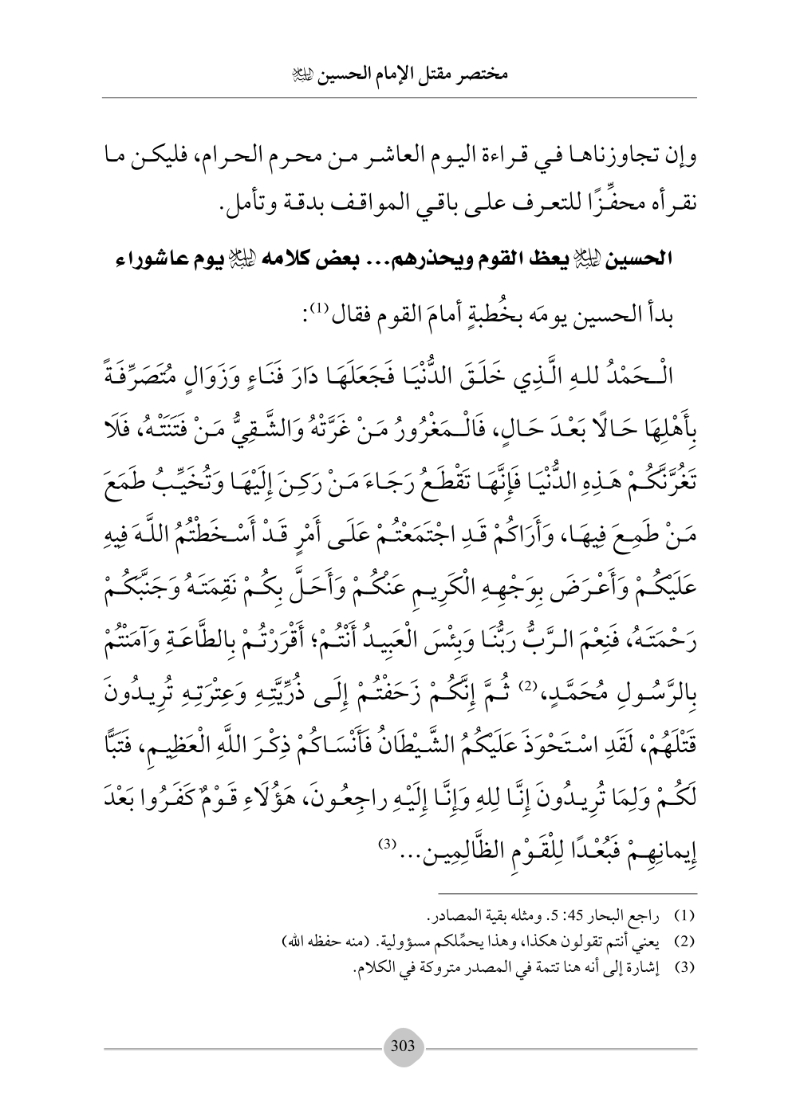 مختصر مقتل الإمام الحسين عليه السلام
وإن تجاوزناها في قراءة اليوم العاشر من محرم الحرام، فليكن ما
نقرأه محفِّزًا للتعرف على باقي المواقف بدقة وتأمل.
الحسين عليه السلام يعظ القوم ويحذرهم... بعض كلامه عليه السلام يوم عاشوراء
بدأ الحسين يومَه بخُطبةٍ أمامَ القوم فقال(1):
الْحَمْدُ للهِ الَّذِي خَلَقَ الدُّنْيَا فَجَعَلَهَا دَارَ فَنَاءٍ وَزَوَالٍ مُتَصَرِّفَةً
بِأَهْلِهَا حَالًا بَعْدَ حَالٍ، فَالْمَغْرُورُ مَنْ غَرَّتْهُ وَالشَّقِيُّ مَنْ فَتَنَتْهُ، فَلَا
تَغُرَّنَّكُمْ هَذِهِ الدُّنْيَا فَإِنَّهَا تَقْطَعُ رَجَاءَ مَنْ رَكِنَ إِلَيْهَا وَتُخَيِّبُ طَمَعَ
مَنْ طَمِعَ فِيهَا، وَأَرَاكُمْ قَدِ اجْتَمَعْتُمْ عَلَى أَمْرٍ قَدْ أَسْخَطْتُمُ اللَّهَ فِيهِ
عَلَيْكُمْ وَأَعْرَضَ بِوَجْهِهِ الْكَرِيمِ عَنْكُمْ وَأَحَلَّ بِكُمْ نَقِمَتَهُ وَجَنَّبَكُمْ
رَحْمَتَهُ، فَنِعْمَ الرَّبُّ رَبُّنَا وَبِئْسَ الْعَبِيدُ أَنْتُمْ؛ أَقْرَرْتُمْ بِالطَّاعَةِ وَآمَنْتُمْ
بِالرَّسُولِ مُحَمَّدٍ،(2) ثُمَّ إِنَّكُمْ زَحَفْتُمْ إِلَى ذُرِّيَّتِهِ وَعِتْرَتِهِ تُرِيدُونَ
قَتْلَهُمْ، لَقَدِ اسْتَحْوَذَ عَلَيْكُمُ الشَّيْطَانُ فَأَنْسَاكُمْ ذِكْرَ اللَّهِ الْعَظِيمِ، فَتَبًّا
لَكُمْ وَلِمَا تُرِيدُونَ إِنَّا لِلهِ وَإِنَّا إِلَيْهِ راجِعُونَ، هَؤُلَاءِ قَوْمٌ كَفَرُوا بَعْدَ
إِيمانِهِمْ فَبُعْدًا لِلْقَوْمِ الظَّالِمِين...(3)
(1) راجع البحار 45: 5. ومثله بقية المصادر.
(2) يعني أنتم تقولون هكذا، وهذا يحمِّلكم مسؤولية. (منه حفظه الله)
(3) إشارة إلى أنه هنا تتمة في المصدر متروكة في الكلام.
303